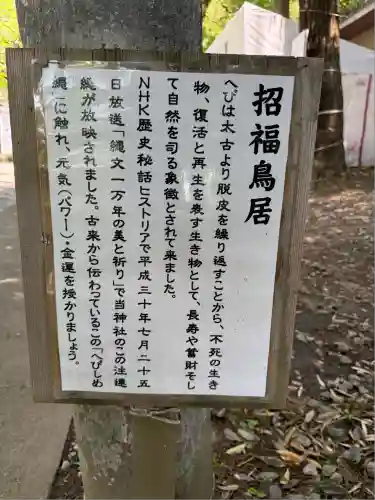 招福鳥居
へびは太古より脱皮を繰り返すことから、不死の生き
物、復活と再生を表す生き物として、長寿や蓄財そし
て自然を司る象徴とされて来ました。
NHK歴史秘話ヒストリアで平成三十年七月二十五
日放送「縄文一万年の美と祈り」で当神社のこの注連
縄が放映されました。古来から伝わっているこの「へびしめ
縄」に触れ、元気（パワー）・金運を授かりましょう。